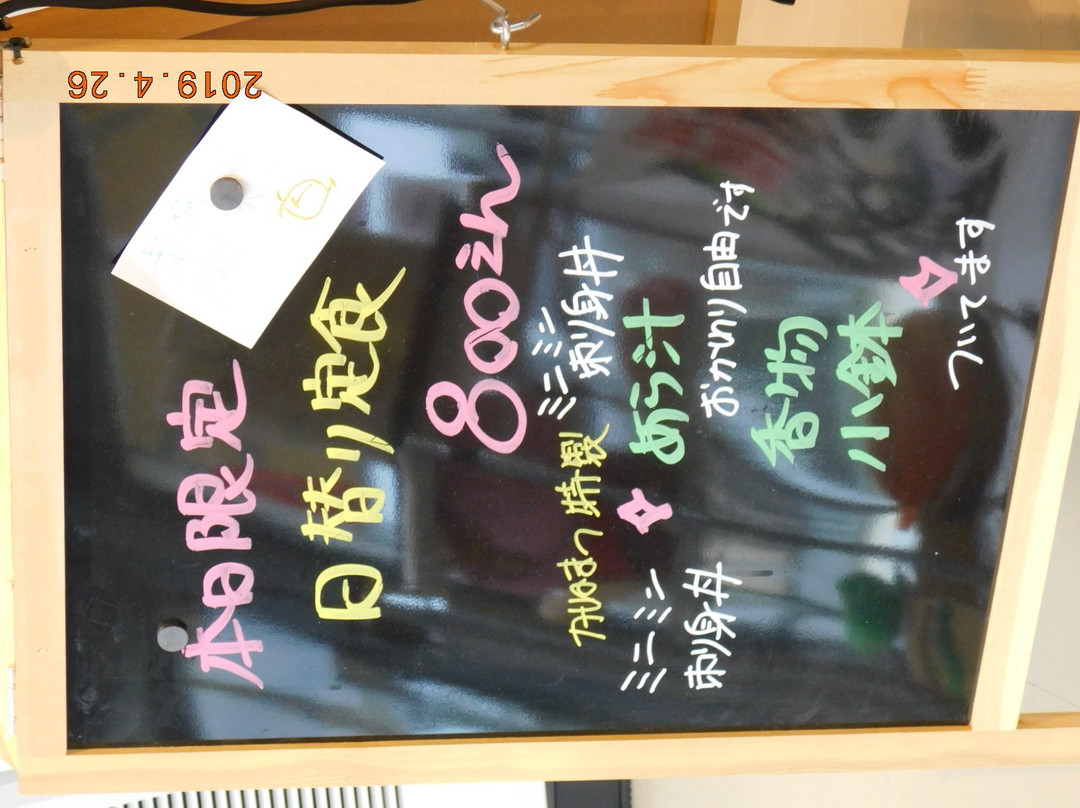 2019.4.26
本日限定
日替り定食
800えん
かねまつ特製
ミニミニ
刺身丼
ミニミニ
刺身丼
あら汁
おかわり自由です
香物
小鉢
ついてます